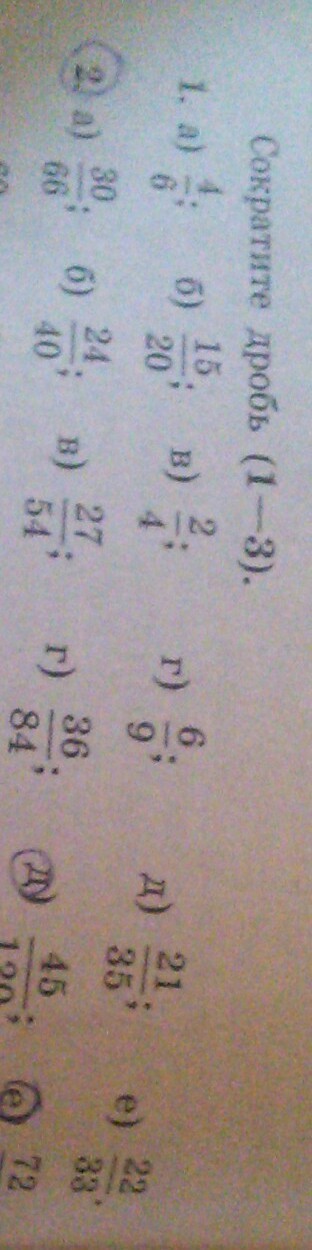 Сократите дробь (1—3).
1. а) 4/6; б) 15/20; в) 2/4; г) 6/9; д) 21/35; е) 22/33.
2. а) 30/66; б) 24/40; в) 27/54; г) 36/84; д) 45/120; е) 72